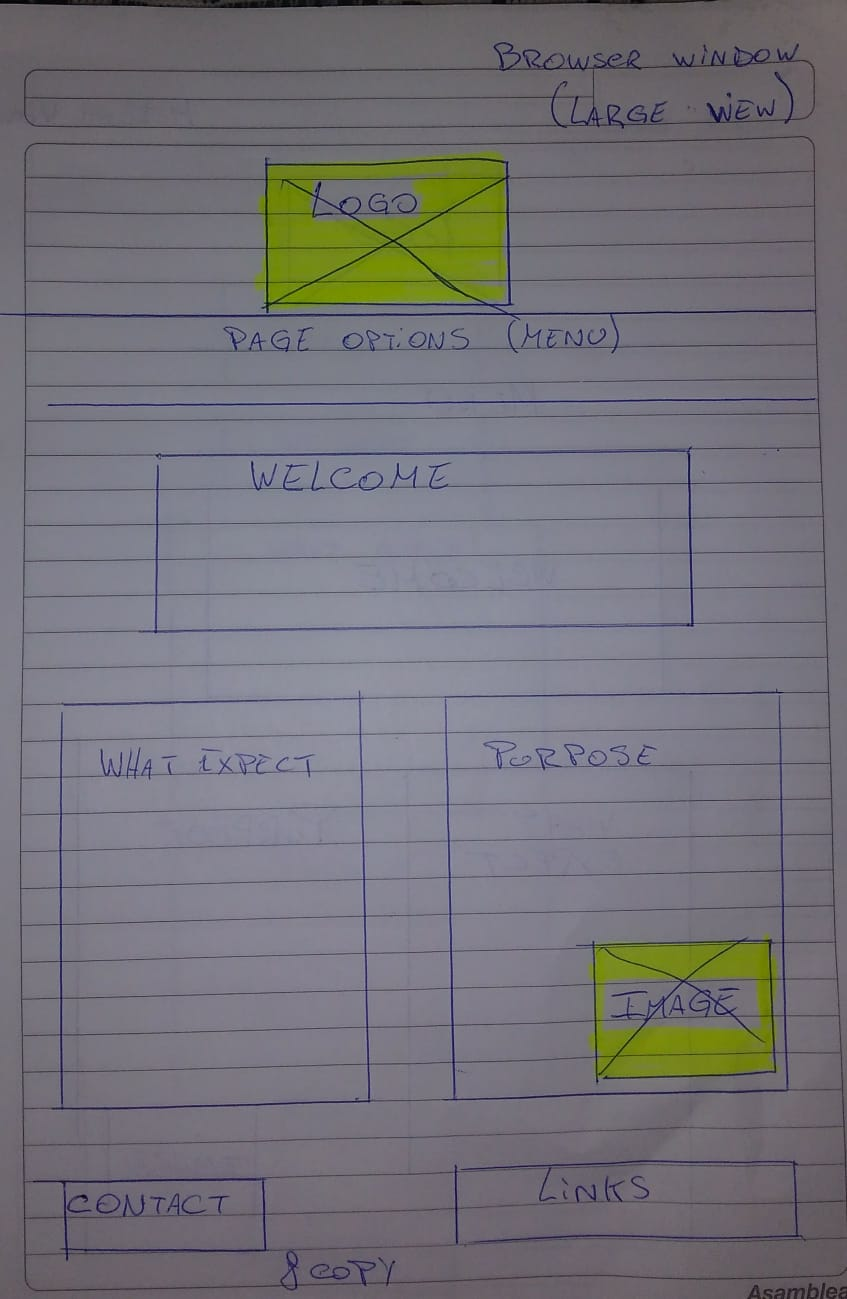 BROWSER WINDOW
(LARGE VIEW)
LOGO
PAGE OPTIONS (MENU)
WELCOME
WHAT EXPECT
PURPOSE
IMAGE
CONTACT
LINKS
& COPY
Asamblea